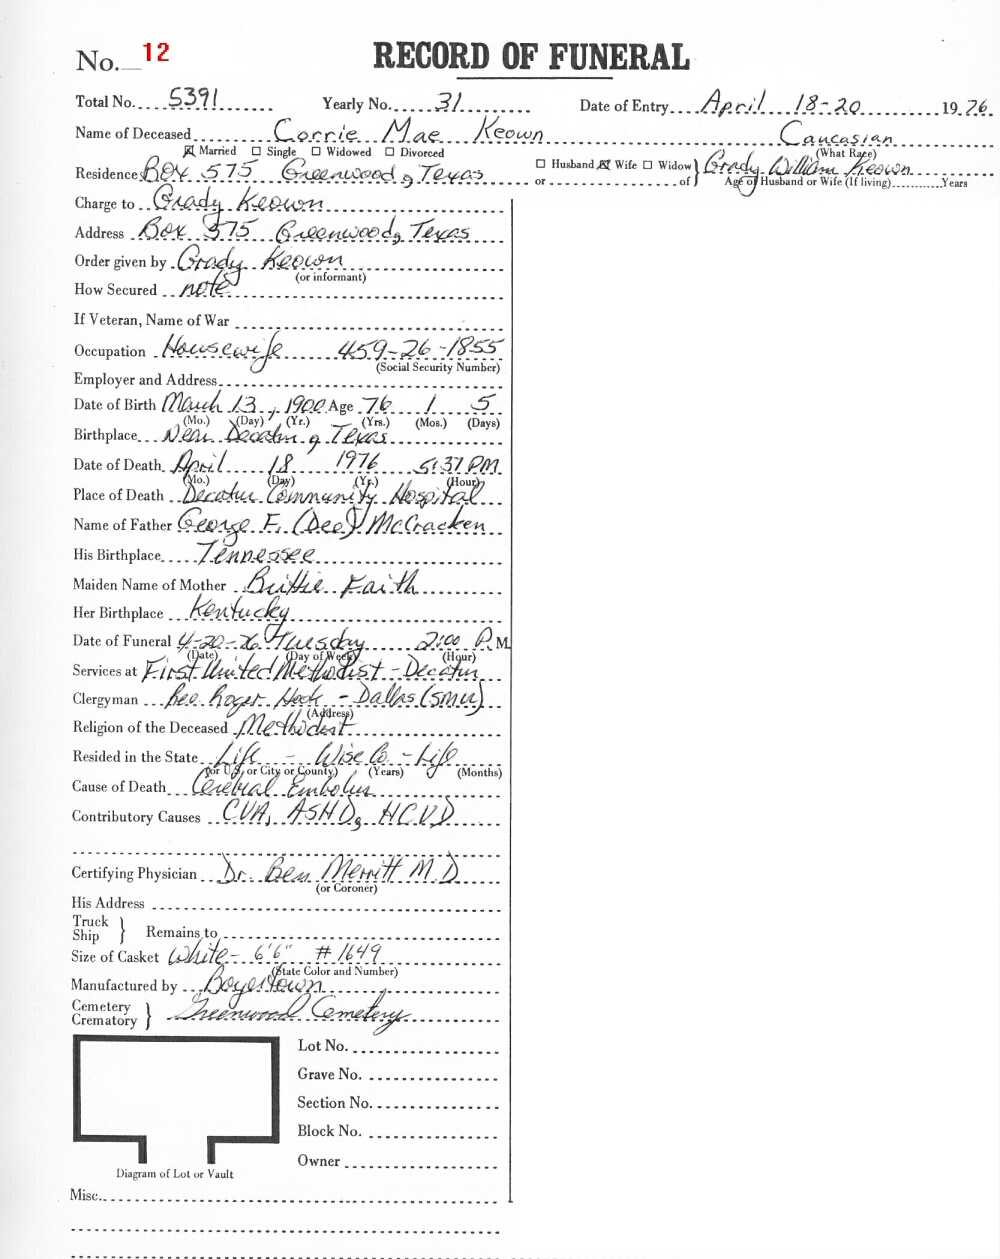 No. 12 RECORD OF FUNERAL
Total No. 5391 Yearly No. 31 Date of Entry April 18-20 1976
Name of Deceased Corrie Mae Keown Caucasian
☒ Married ☐ Single ☐ Widowed ☐ Divorced (What Race)
Residence Box 575 Greenwood, Texas ☐ Husband ☒ Wife ☐ Widow } Grady William Keown
or of } Age of Husband or Wife (If living) Years
Charge to Grady Keown
Address Box 575 Greenwood, Texas
Order given by Grady Keown
(or informant)
How Secured note
If Veteran, Name of War
Occupation Housewife 459-26-1855
(Social Security Number)
Employer and Address
Date of Birth March 13, 1900 Age 76 1 5
(Mo.) (Day) (Yr.) (Yrs.) (Mos.) (Days)
Birthplace Near Decatur, Texas
Date of Death April 18 1976 5:37 PM
(Mo.) (Day) (Yr.) (Hour)
Place of Death Decatur Community Hospital
Name of Father George F. (Dee) McCracken
His Birthplace Tennessee
Maiden Name of Mother Brittie Faith
Her Birthplace Kentucky
Date of Funeral 4-20-76 Tuesday 2:00 P.M.
(Date) (Day of Week) (Hour)
Services at First United Methodist - Decatur
Clergyman Rev. Roger - Dallas (SMU)
(Address)
Religion of the Deceased Methodist
Resided in the State Life - Wise Co - Life
(or U.S. or City or County) (Years) (Months)
Cause of Death Cerebral Embolus
Contributory Causes CVA, ASHD, HCVD
Certifying Physician Dr. Ben Merritt M.D
(or Coroner)
His Address
Truck
Ship } Remains to
Size of Casket White- 6'6" #1649
(State Color and Number)
Manufactured by Boyertown
Cemetery
Crematory } Greenwood Cemetery
Lot No.
Grave No.
Section No.
Block No.
Owner
Diagram of Lot or Vault
Misc.